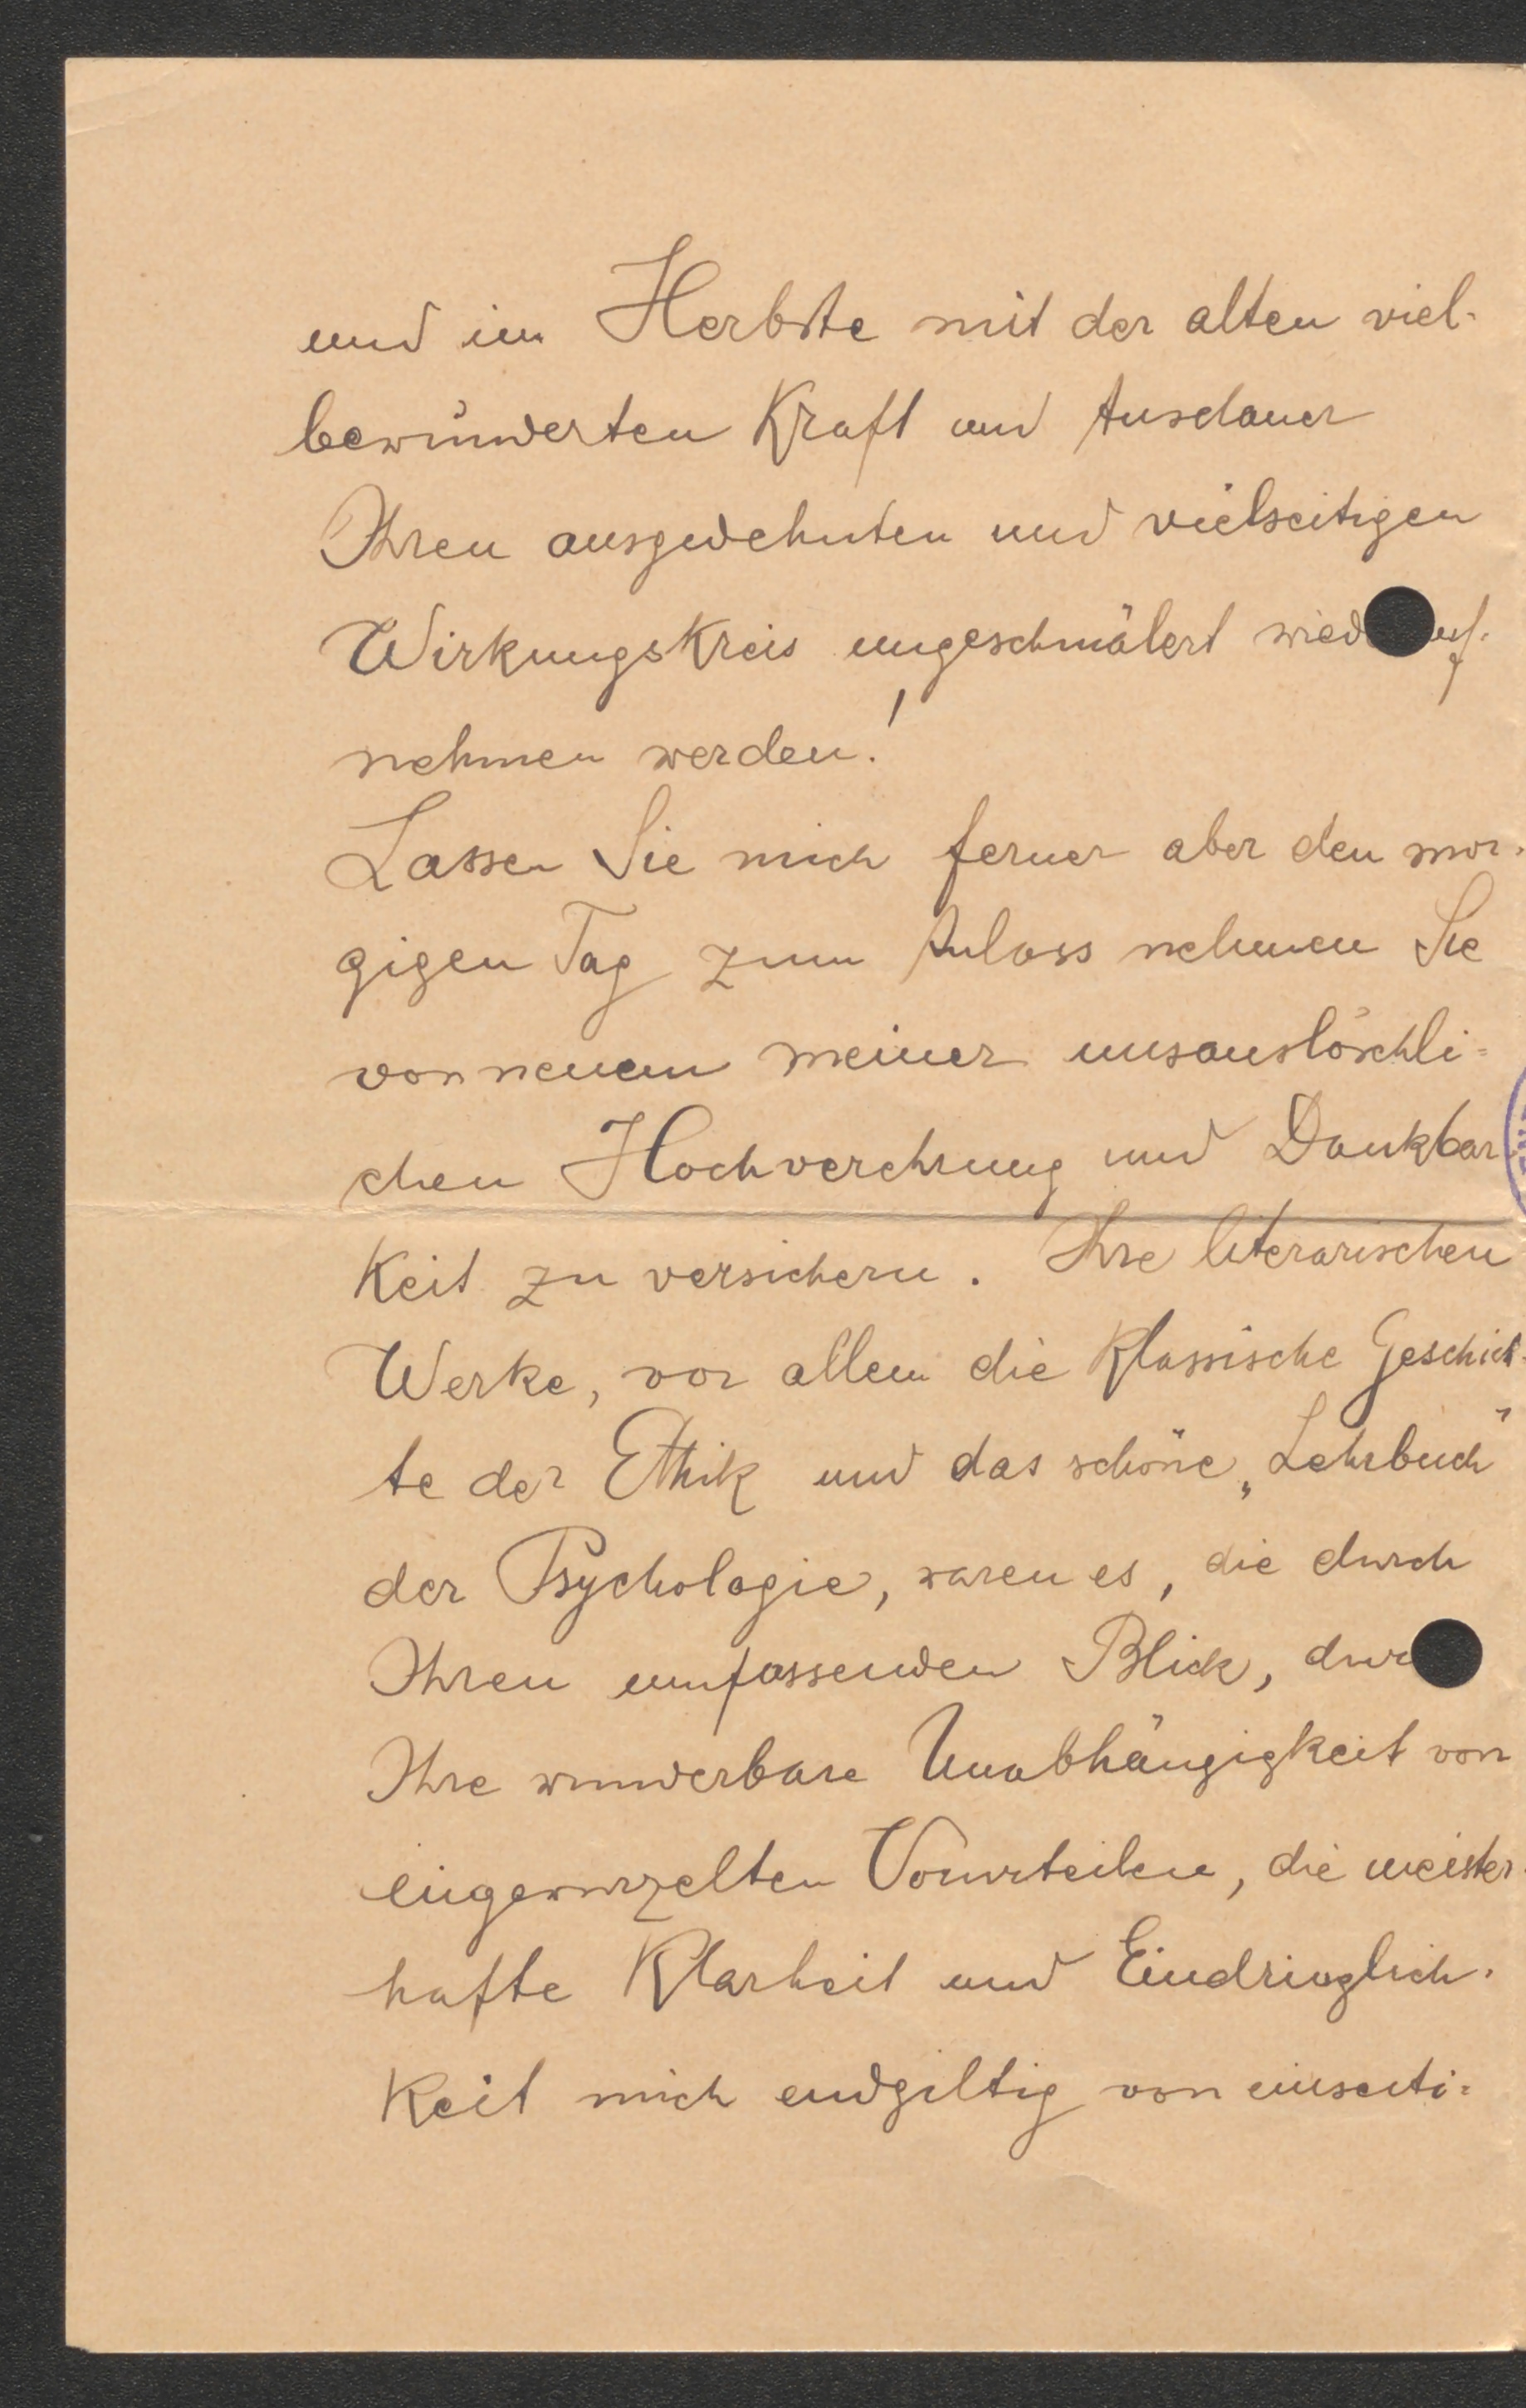 und im Herbste mit der alten viel-
bewunderten Kraft und Ausdauer
Ihren ausgedehnten und vielseitigen
Wirkungskreis ungeschmälert wied auf-
nehmen werden!
Lassen Sie mich ferner aber den mor-
gigen Tag zum Anlass nehmen Sie
von neuem meiner unauslöschli-
chen Hochverehrung und Dankbar
keit zu versichern. Ihre literarischen
Werke, vor allem die klassische Geschich-
te der Ethik und das schöne „Lehrbuch"
der Psychologie, waren es, die durch
Ihren umfassenden Blick, dur
Ihre wunderbare Unabhängigkeit von
eingewurzelten Vorurteilen, die meister-
hafte Klarheit und Eindringlich-
keit mich endgiltig von einseiti-